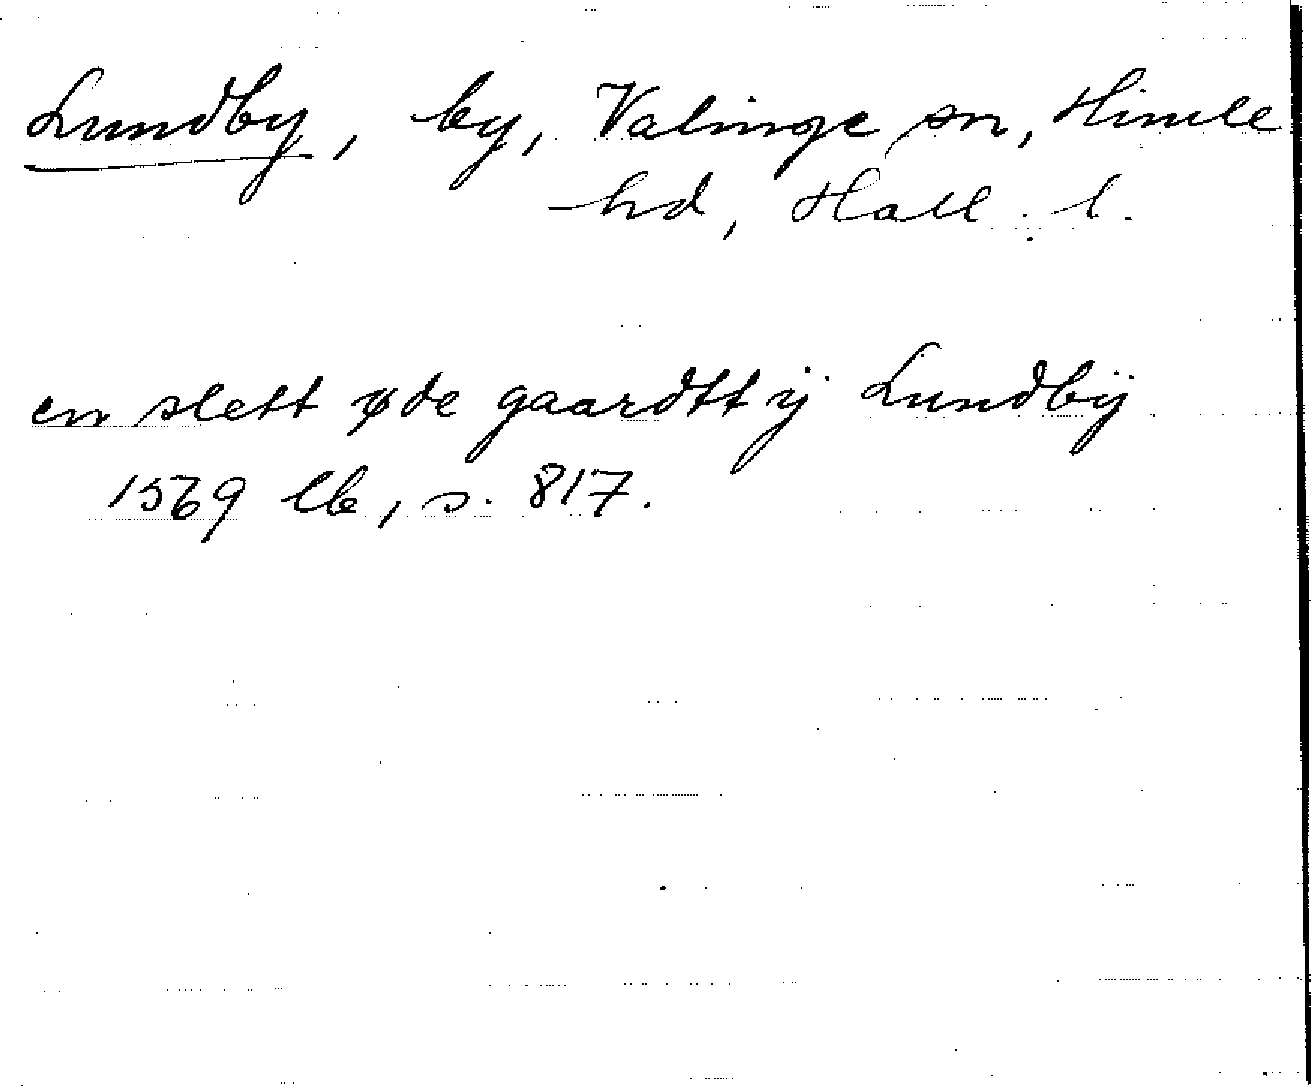 Lundby, by, Valinge sn, Himle
hd, Hall. l.
en slett øde gaardtt ij Lundbÿ
1569 lb, s. 817.